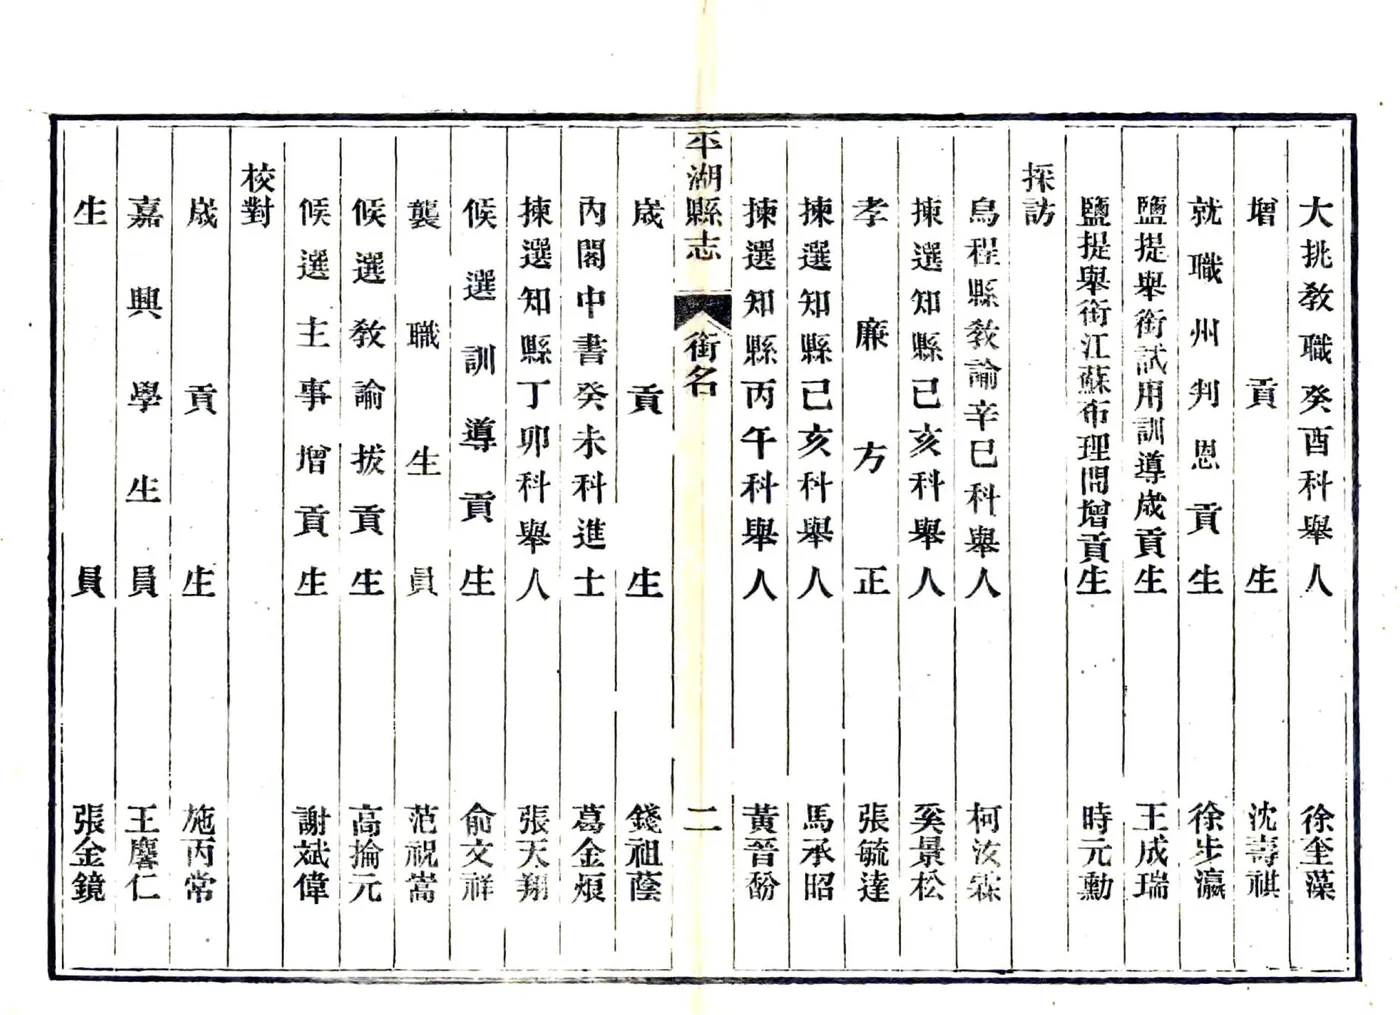 大挑敎職癸酉科舉人 徐奎藻
增貢生 沈壽祺
就職州判恩貢生 徐步瀛
鹽提舉銜試用訓導歲貢生 王成瑞
鹽提舉銜江蘇布理問增貢生 時元勳
採訪
烏程縣敎諭辛巳科舉人 柯汝霖
揀選知縣己亥科舉人 奚景松
孝廉方正 張毓達
揀選知縣己亥科舉人 馬承昭
揀選知縣丙午科舉人 黃晉馚
平湖縣志 銜名 二
歲貢生 錢祖蔭
內閣中書癸未科進士 葛金烺
揀選知縣丁卯科舉人 張天翔
候選訓導貢生 俞文祥
襲職生員 范祝嵩
候選敎諭拔貢生 高掄元
候選主事增貢生 謝斌偉
校對
歲貢生 施丙常
嘉興學生員 王麐仁
生員 張金鏡